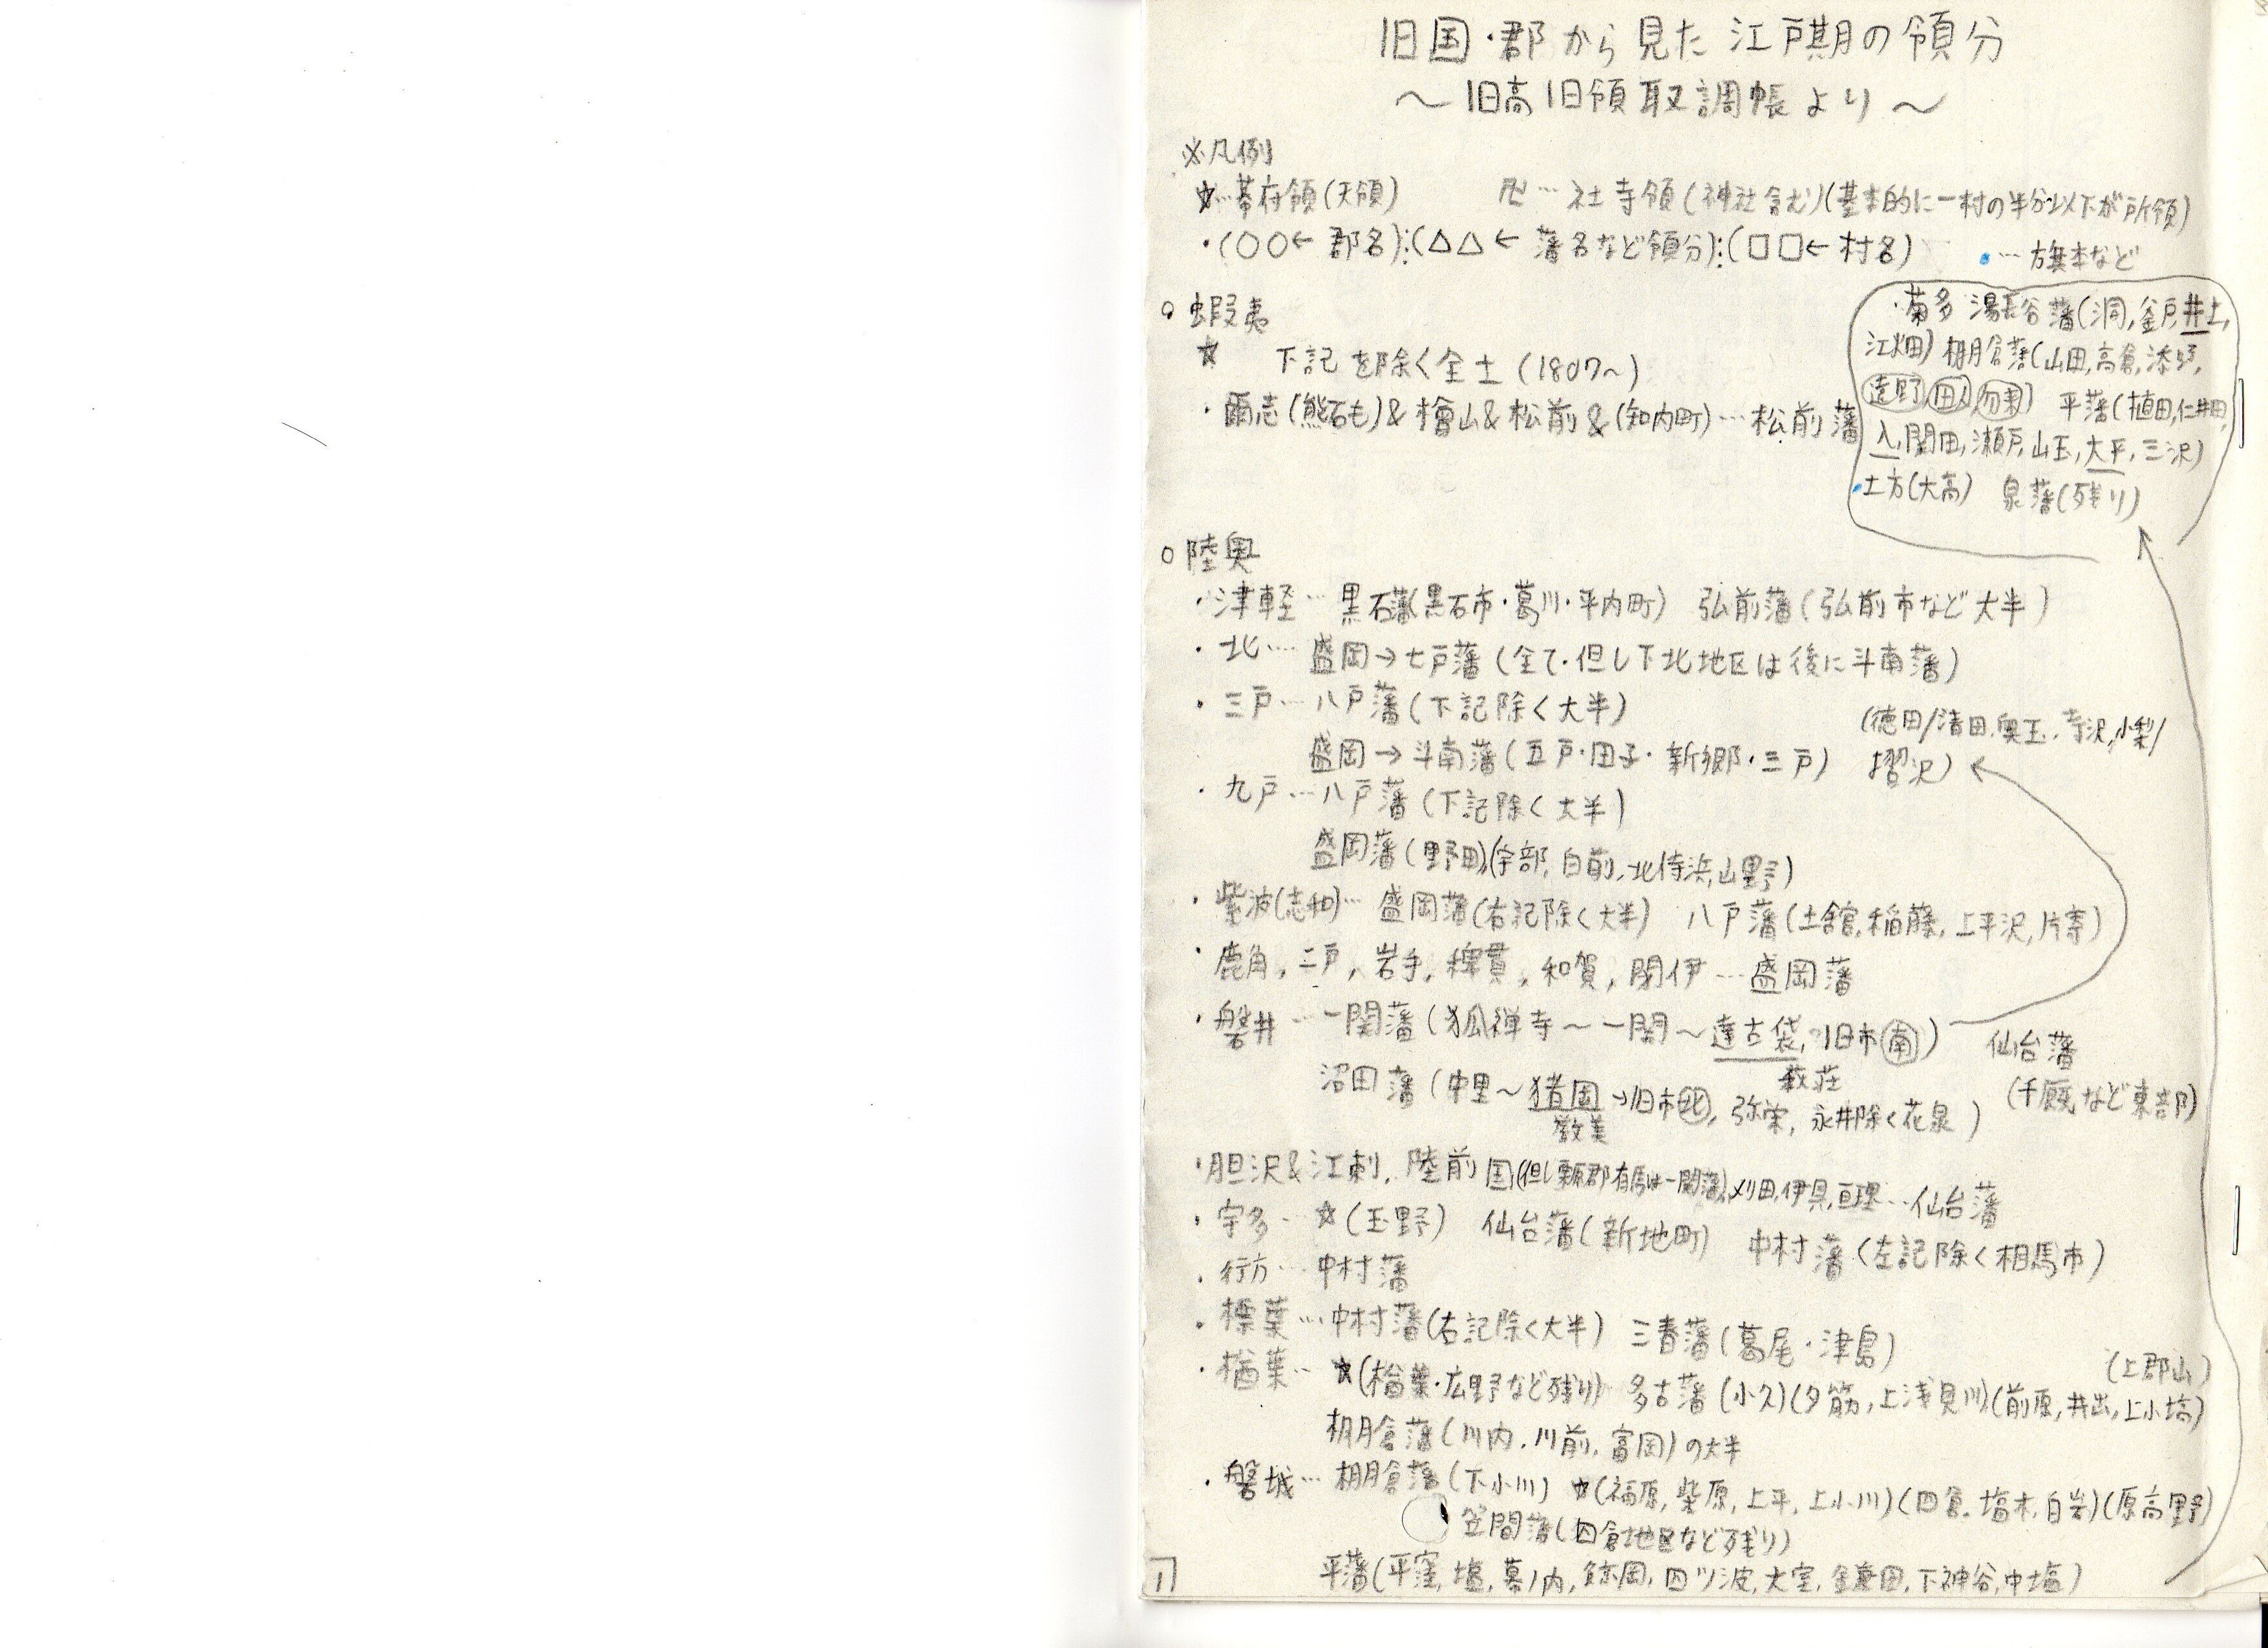 旧国・郡から見た江戸期の領分
～旧高旧領取調帳より～
※凡例
☆…幕府領(天領) 卍…社寺領(神社含む)(基本的に一村の半分以下が所領)
・(○○←郡名):(△△←藩名など領分):(□□←村名) ・…旗本など
○蝦夷
☆ 下記を除く全土(1807～)
・爾志(熊石も)&檜山&松前&(知内町)…松前藩
・菊多 湯長谷藩(洞,釜戸,井上,
江畑) 棚倉藩(山田,高倉,添野,
遠野,田人,勿来) 平藩(植田,仁井田,
入,関田,瀬戸,山玉,大平,三沢)
・土方(大高) 泉藩(残り)
○陸奥
・津軽…黒石藩(黒石市・葛川・平内町) 弘前藩(弘前市など大半)
・北…盛岡→七戸藩(全て・但し下北地区は後に斗南藩)
・三戸…八戸藩(下記除く大半)
盛岡→斗南藩(五戸・田子・新郷・三戸)
・九戸…八戸藩(下記除く大半)
盛岡藩(野田)(宇部,白前,北侍浜,山野)
・紫波(志和)…盛岡藩(右記除く大半) 八戸藩(土舘,稲藤,上平沢,片寄)
・鹿角,二戸,岩手,稗貫,和賀,閉伊…盛岡藩
・磐井…一関藩(狐禅寺～一関～達古袋,旧市南) 仙台藩
萩荘
(徳田/清田,奥玉,寺沢,小梨/
摺沢)
沼田藩(中里～猪岡→旧市北,弥栄,永井除く花泉) (千厩など東部)
厳美
・胆沢&江刺,陸前国(但し栗原郡有馬は一関藩),刈田,伊具,亘理…仙台藩
・宇多…☆(玉野) 仙台藩(新地町) 中村藩(左記除く相馬市)
・行方…中村藩
・標葉…中村藩(右記除く大半) 三春藩(葛尾・津島)
・楢葉…☆(楢葉・広野など残り) 多古藩(小久)(夕筋,上浅見川)(前原,井出,上小塙)
(上郡山)
棚倉藩(川内,川前,富岡)の大半
・磐城…棚倉藩(下小川) ☆(福原,柴原,上平,上小川)(四倉,塩木,白岩)(原高野)
笠間藩(四倉地区など残り)
平藩(平窪,塩,幕ノ内,鯨岡,四ツ波,大室,鎌田,下神谷,中塩)
1